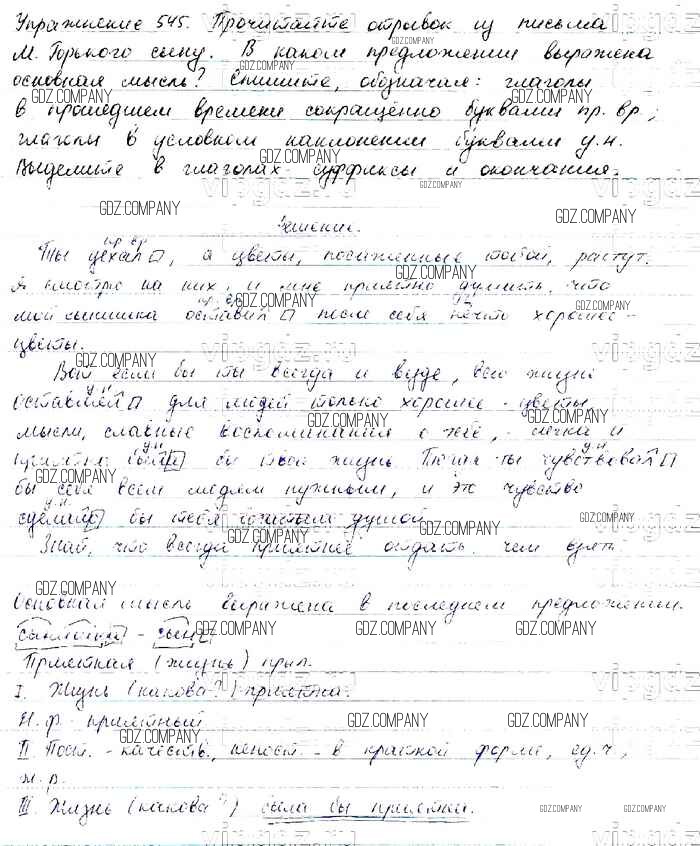 Упражнение 545. Прочитайте отрывок из письма
М. Горького сыну. В каком предложении выражена
основная мысль? Спишите, обозначая: глаголы
в прошедшем времени сокращённо буквами пр. вр.;
глаголы в условном наклонении буквами у.н.
Выделите в глаголах суффиксы и окончания.
Решение.
пр. вр.
Ты уехал, а цветы, посаженные тобой, растут.
Я смотрю на них, и мне приятно думать, что
пр. вр.
мой сынишка оставил после себя нечто хорошее -
цветы.
Вот если бы ты всегда и везде, всю жизнь
у.н.
оставлял для людей только хорошее - цветы,
мысли, славные воспоминания о тебе, - легка и
у.н. у.н.
приятна была бы твоя жизнь. Тогда ты чувствовал
бы себя всем людям нужным, и это чувство
у.н.
сделало бы тебя богатым душой.
Знай, что всегда приятнее отдать, чем взять.
Основная мысль выражена в последнем предложении.
сынишка - сын
Приятная (жизнь) прил.
I. Жизнь (какова?) приятна.
Н.ф. - приятный
II. Пост. - качеств., непост. - в краткой форме, ед.ч.,
ж.р.
III. Жизнь (какова?) была бы приятна.
GDZ.COMPANY